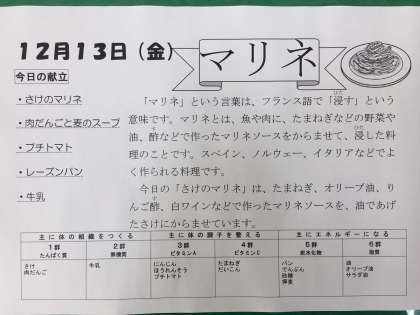 12月13日（金）
マリネ
今日の献立
・さけのマリネ
・肉だんごと麦のスープ
・プチトマト
・レーズンパン
・牛乳
「マリネ」という言葉は、フランス語で「浸す」という
意味です。マリネとは、魚や肉に、たまねぎなどの野菜や
油、酢などで作ったマリネソースをからませて、浸した料
理のことです。スペイン、ノルウェー、イタリアなどでよ
く作られる料理です。
今日の「さけのマリネ」は、たまねぎ、オリーブ油、り
んご酢、白ワインなどで作ったマリネソースを、油であげ
たさけにからませています。
主に体の組織をつくる 主に体の調子を整える 主にエネルギーになる
1群 2群 3群 4群 5群 6群
たんぱく質 無機質 ビタミンA ビタミンC 炭水化物 脂質
さけ 牛乳 にんじん たまねぎ パン 油
肉だんご ほうれんそう だいこん でんぷん オリーブ油
プチトマト 砂糖 サラダ油
押麦